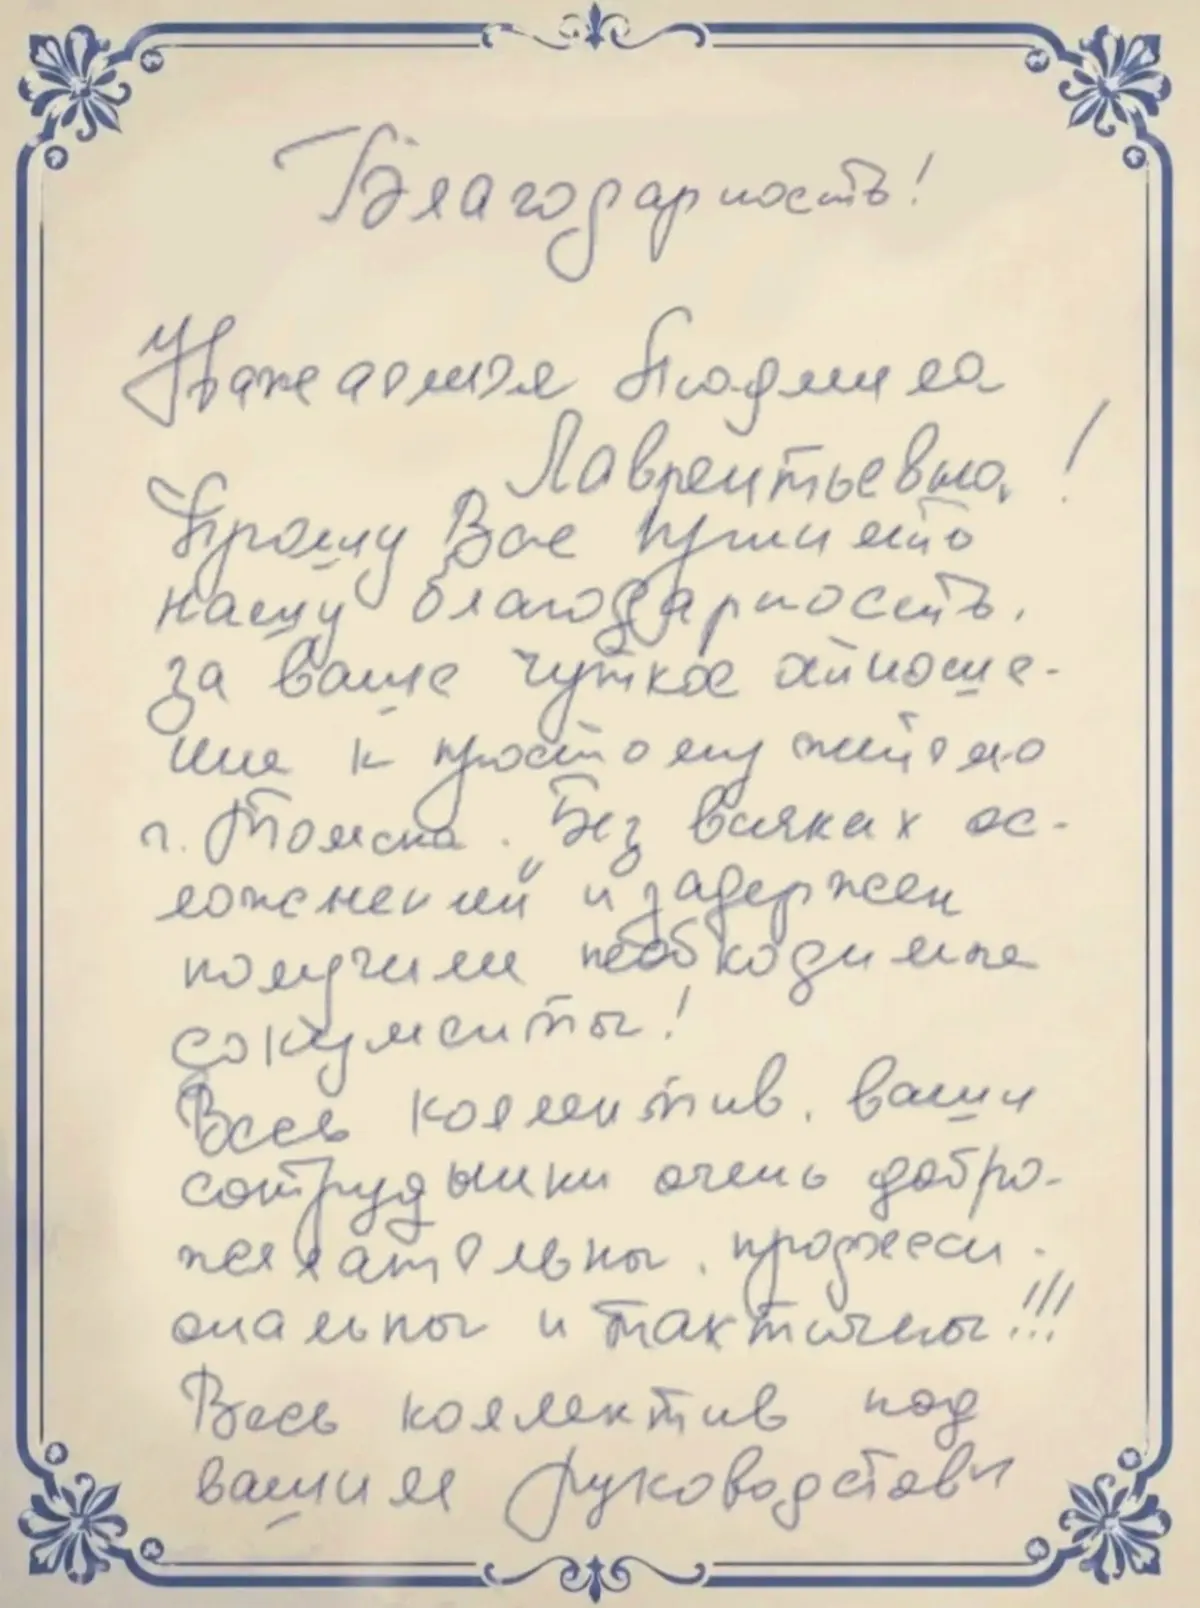 Благодарность!
Уважаемая Людмила
Лаврентьевна!
Прошу Вас принять
нашу благодарность,
за ваше чуткое отноше-
ние к простому жителю
г. Томска. Без всяких ос-
ложнений и задержек
получили необходимые
документы!
Весь коллектив, ваши
сотрудники очень добро-
желательны, професси-
ональны и тактичны!!!
Весь коллектив под
вашим руководством